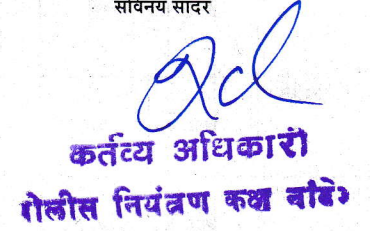 सविनय सादर
कर्तव्य अधिकारी
पोलीस नियंत्रण कक्ष